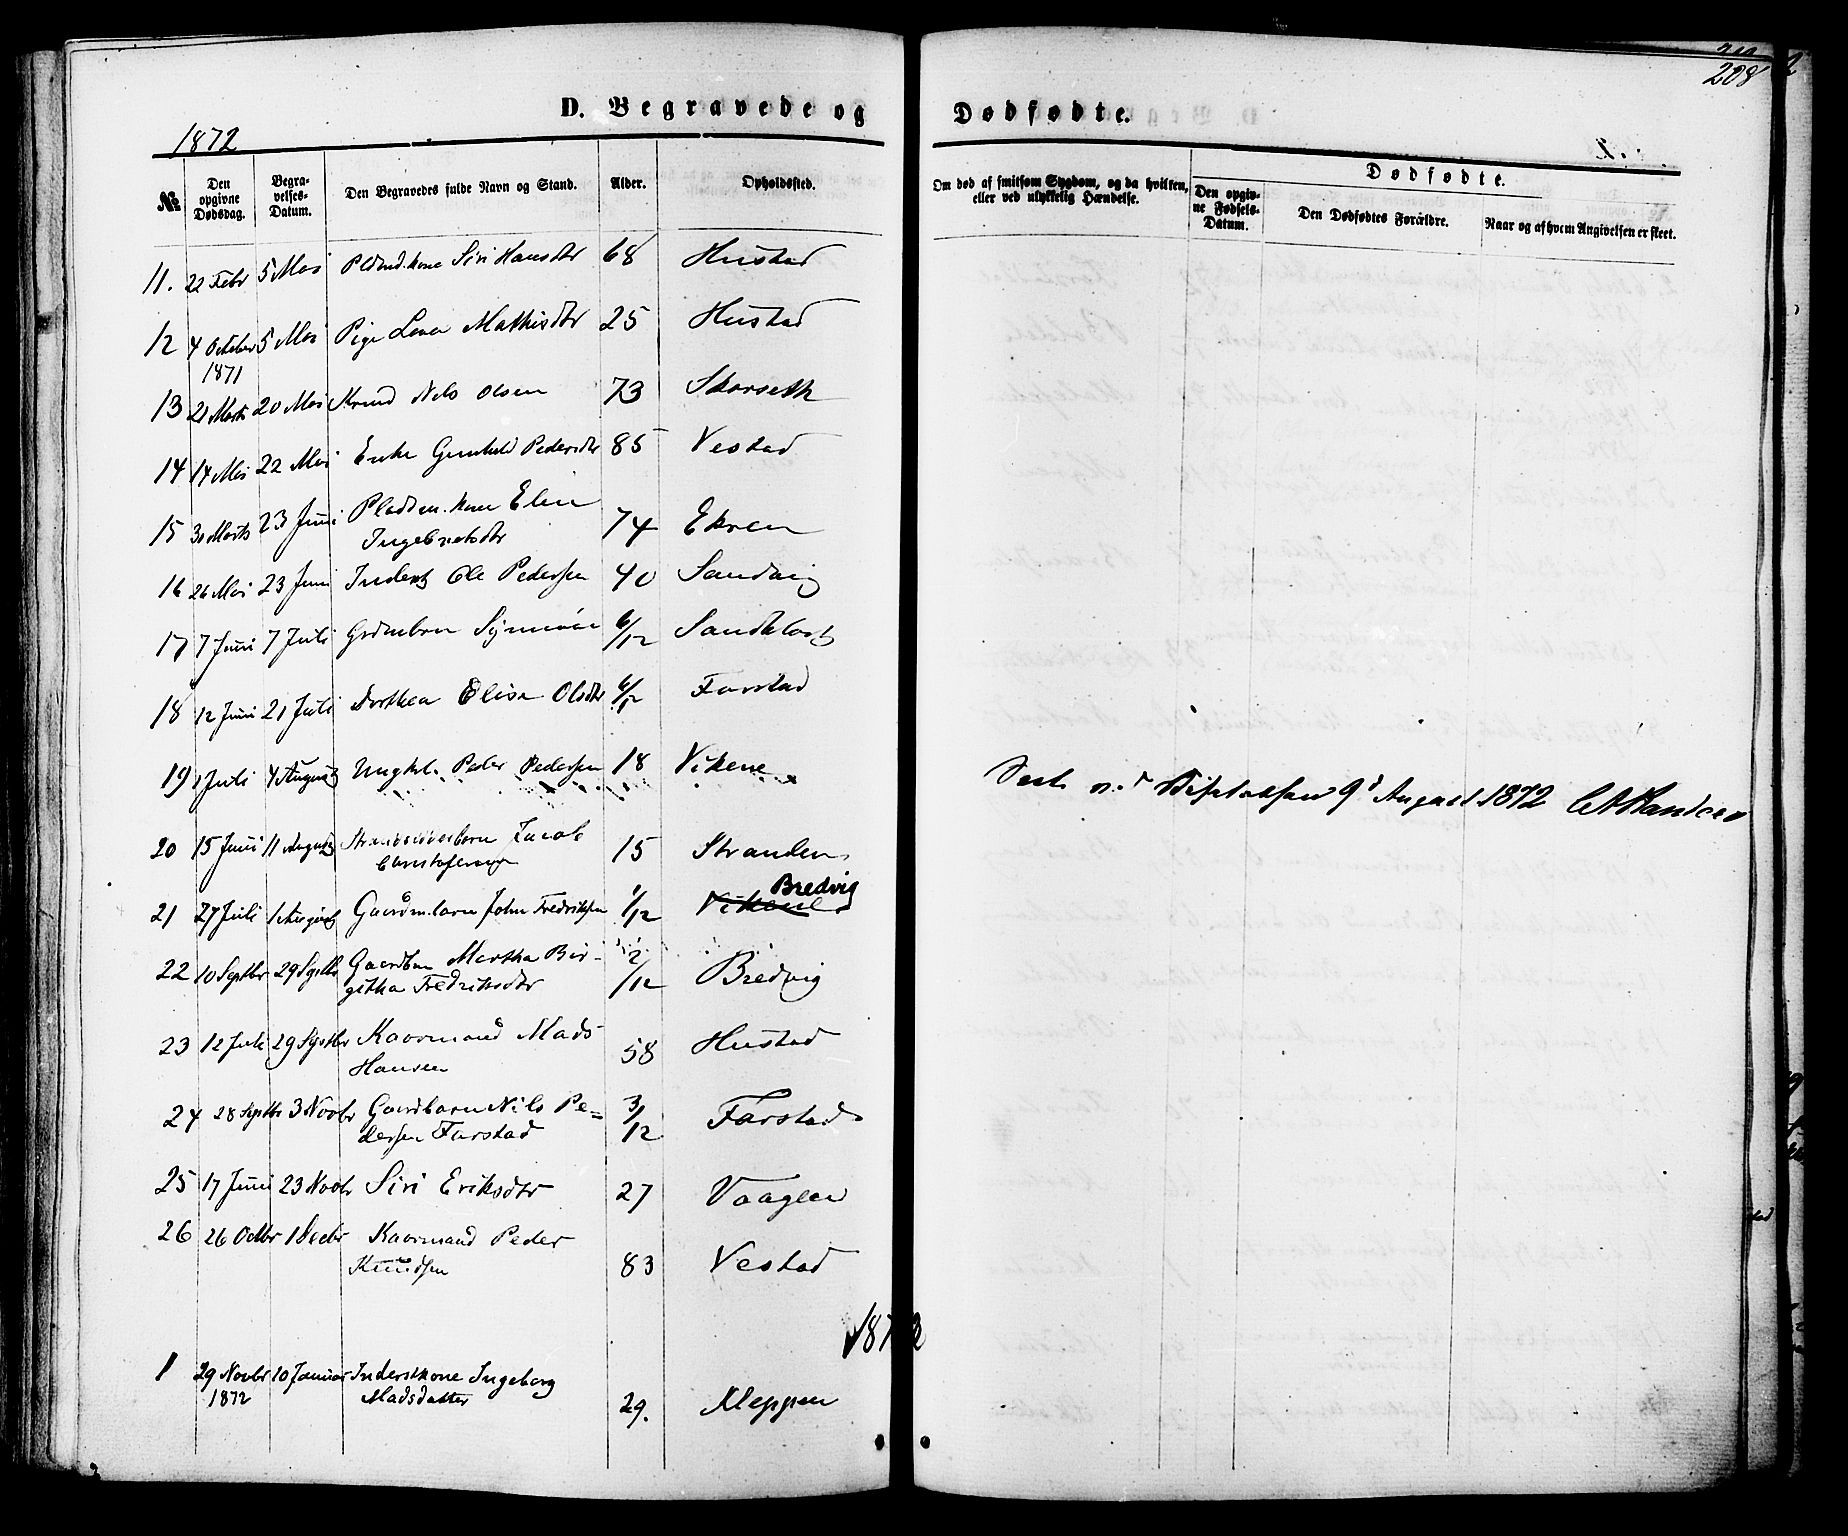 208
D. Begravede og Dødfødte.
1872
№ Den opgivne Dødsdag. Begravelses-Datum. Den Begravedes fulde Navn og Stand. Alder. Opholdssted. Om død af smitsom Sygdom, og da hvilken, eller ved ulykkelig Hændelse. Dødfødte. Den opgivne Fødsels-Datum. Den Dødfødtes Forældre. Naar og af hvem Angivelsen er skeet.
11. 22 Febr 5 Mai Pldmd. kone Siri Hansdtr 68 Hustad
12 4 October 1871 5 Mai Pige Lena Mathisdtr 25 Hustad
13 21 Marts 20 Mai Nils Olsen 73 Skarseth
14 14 Mai 22 Mai Enke Gunhild Pedersdtr 85 Vestad
15 30 Marts 23 Juni Pladsm. kone Elin
Ingebretsdtr 74 Ekren
16 26 Mai 23 Juni Inderst Ole Pedersen 40 Sandvig
17 7 Juni 7 Juli Grdmbrn Synnøve 6/12 Sandblost
18 12 Juni 21 Juli Dorthea Elisa Olsdtr 6/12 Farstad
19 1 Juli 4 August Ungkl. Peder Pedersen 18 Vikene
Seet 9d August 1872
20 15 Juni 11 August Jacob
15 Stranden
21 27 Juli 1 August Gaardm.barn John Fredriksen 1/12 Vikene Bredvig
22 10 Septbr 29 Septbr Gaardbrn Martha Bir-
githa Fredriksdtr 2/12 Bredvig
23 12 Juli 29 Septbr Kaarmand Mads
Hansen 58 Hustad
24 28 Septbr 3 Novbr Gaardbarn Nils Pe=
dersen Farstad 3/12 Farstad
25 17 Juni 23 Novbr Siri Eriksdtr 27 Vaagen
26 26 Octbr 1 Decbr Kaarmand Peder
Knudsen 83 Vestad
1873
1 29 Novbr 1872 10 Januar Inderstkone Ingeborg
Madsdatter 29. Kleppen